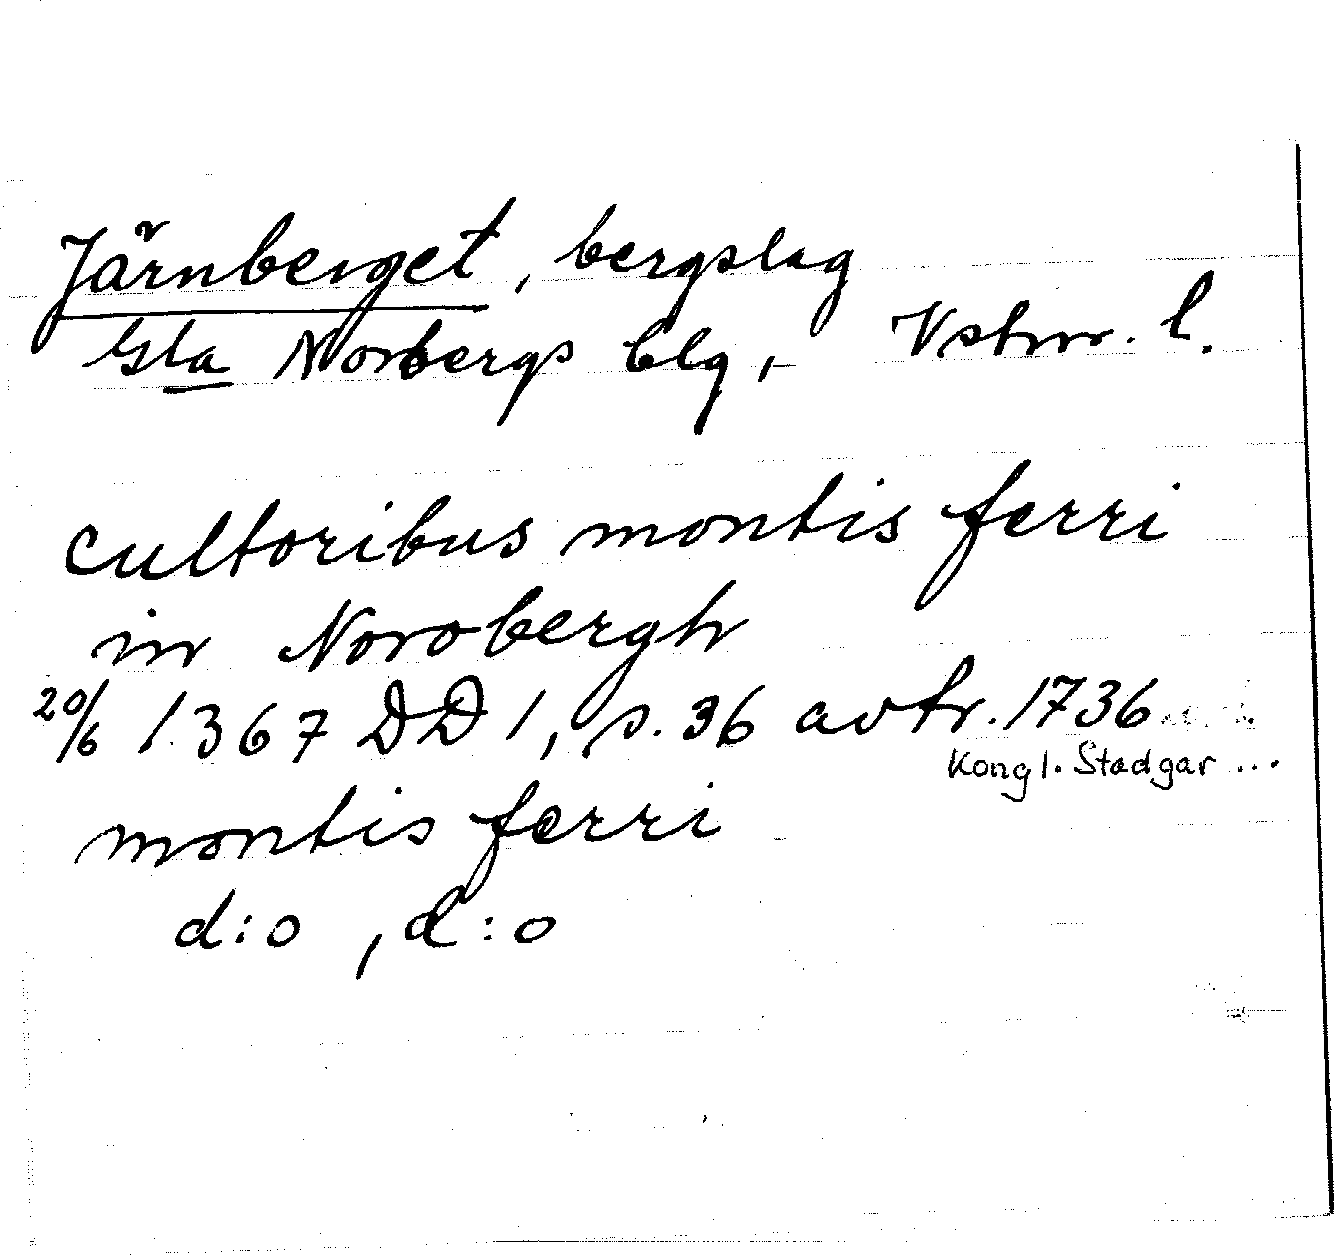 Järnberget, bergslag
Gla Norbergs blg, Vstm. l.
cultoribus montis ferri
in Norobergh
20/6 1367 DD 1, s. 36 avtr. 1736
Kongl. Stadgar ...
montis ferri
d:o, d:o